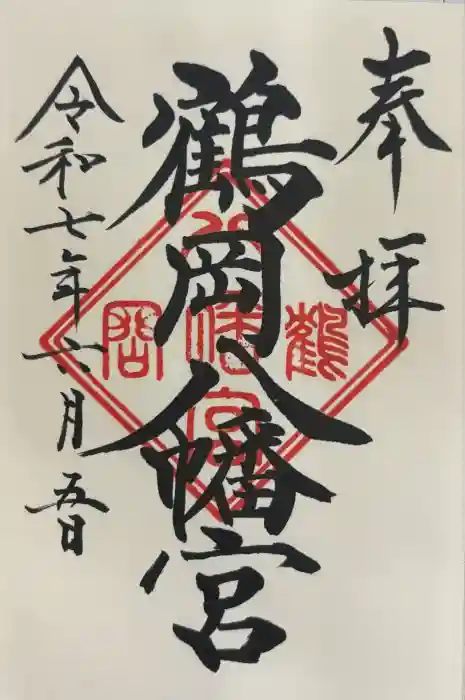 奉拝
鶴岡八幡宮
鶴
八幡宮
岡
令和七年六月五日